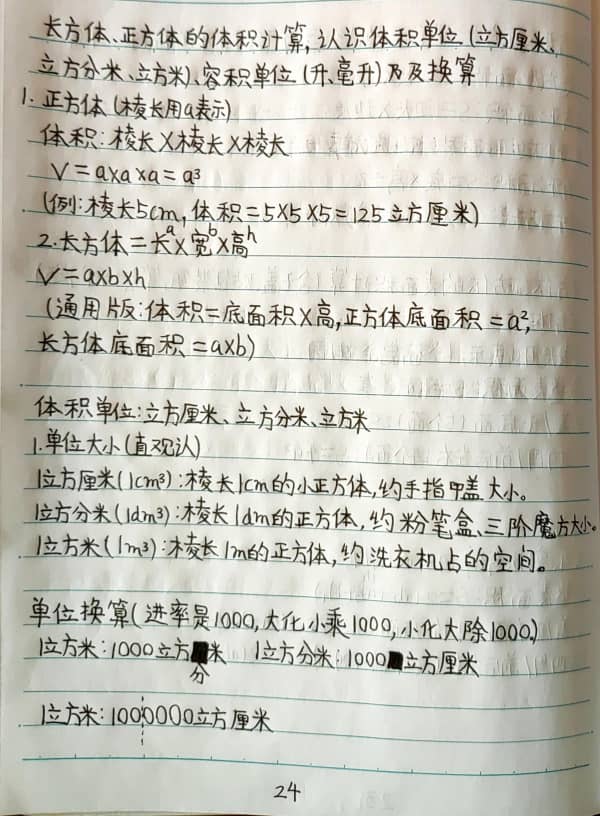 长方体、正方体的体积计算,认识体积单位(立方厘米、
立方分米、立方米)、容积单位(升、毫升)及及换算
1. 正方体(棱长用a表示)
体积:棱长×棱长×棱长
V=a×a×a=a³
(例:棱长5cm,体积=5×5×5=125立方厘米)
2.长方体=长a×宽b×高h
V=a×b×h
(通用版:体积=底面积×高,正方体底面积=a²,
长方体底面积=a×b)
体积单位:立方厘米、立方分米、立方米
1.单位大小(直观认)
1立方厘米(1cm³):棱长1cm的小正方体,约手指甲盖大小。
1立方分米(1dm³):棱长1dm的正方体,约粉笔盒、三阶魔方大小。
1立方米(1m³):棱长1m的正方体,约洗衣机占的空间。
单位换算(进率是1000,大化小乘1000,小化大除1000)
1立方米:1000立方分米 1立方分米:1000立方厘米
1立方米:1000000立方厘米
24